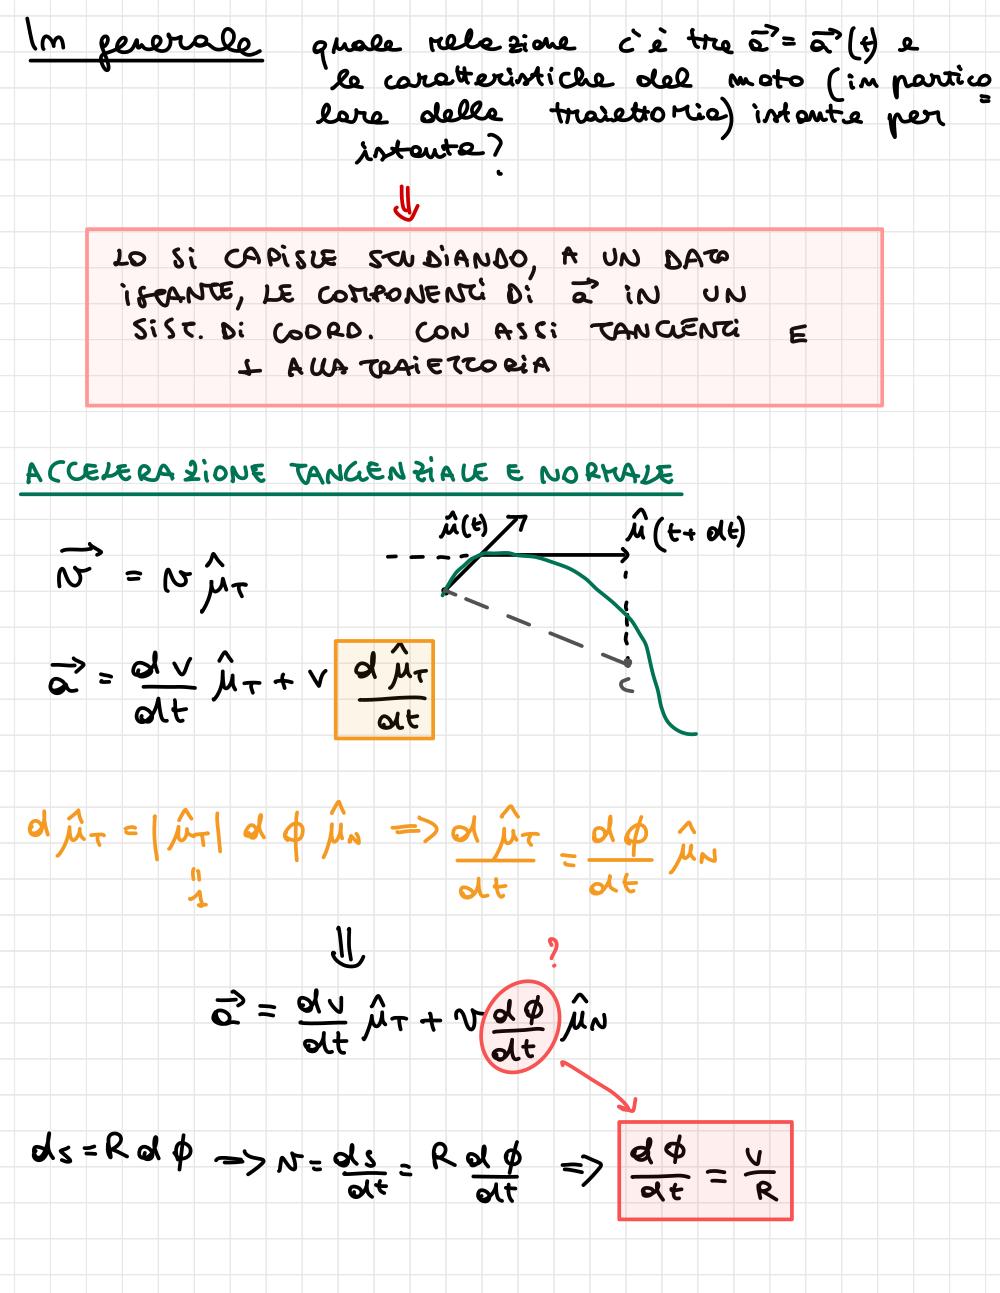 In generale quale relazione c'è tra a⃗ = a⃗(t) e
le caratteristiche del moto (in partico=
lare della traiettoria) istante per
istante?
⇓
LO SI CAPISCE STUDIANDO, A UN DATO
ISTANTE, LE COMPONENTI DI a⃗ IN UN
SIST. DI COORD. CON ASSI TANGENTI E
⊥ ALLA TRAIETTORIA
ACCELERAZIONE TANGENZIALE E NORMALE
û(t) û(t+dt)
v⃗ = v û_T
a⃗ = dv/dt û_T + v dû_T/dt
C
dû_T = |û_T| dϕ û_N => dû_T/dt = dϕ/dt û_N
"
1
⇓
?
a⃗ = dv/dt û_T + v dϕ/dt û_N
ds = R dϕ => v = ds/dt = R dϕ/dt => dϕ/dt = v/R